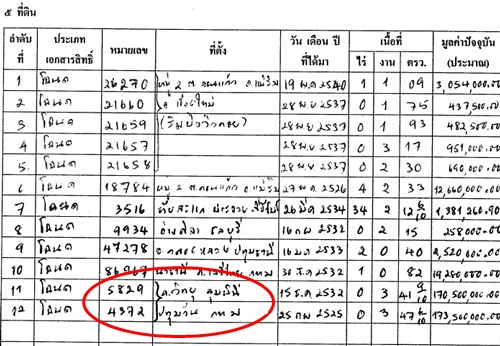 ๕ ที่ดิน
ลำดับที่ ประเภทเอกสารสิทธิ์ หมายเลข ที่ตั้ง วัน เดือน ปี ที่ได้มา เนื้อที่ มูลค่าปัจจุบัน (ประมาณ)
ไร่ งาน ตรว.
1 โฉนด 26270 หมู่ 2 ต. อ.แม่ริม 19 พ.ค 2540 1 1 09 3,054,000.00
2 โฉนด 21660 จ เชียงใหม่ 28 พ.ย 2537 0 1 75 437,500.00
3 โฉนด 21659 28 พ.ย 2537 0 1 93 482,500.00
4 โฉนด 21657 28 พ.ย 2537 0 3 17 951,000.00
5. โฉนด 21658 28 พ.ย 2537 0 2 30 690,000.00
6 โฉนด 18784 หมู่ 2 ต. อ.แม่ริม 27 พ.ค 2526 4 2 33 12,660,000.00
7 โฉนด 3516 ทับสะแก ประจวบคีรีขันธ์ 26 มี.ค 2534 34 2 1,381,260.90
8 โฉนด 9934 อ่างศิลา ชลบุรี 16 กพ 2532 0 2 15 258,000.00
9 โฉนด 47278 อ.คลองหลวง ปทุมธานี 2533 2 0 40 2,520,000.00
10 โฉนด 86967 กทม 30 ธ.ค 2532 1 0 82 19,280,000.00
11 โฉนด 5829 ถ.วิทยุ ลุมพินี 15 ธ.ค 2532 0 3 41 170,500,000.00
12 โฉนด 4372 ปทุมวัน กทม 25 กพ 2525 0 3 47 173,500,000.00